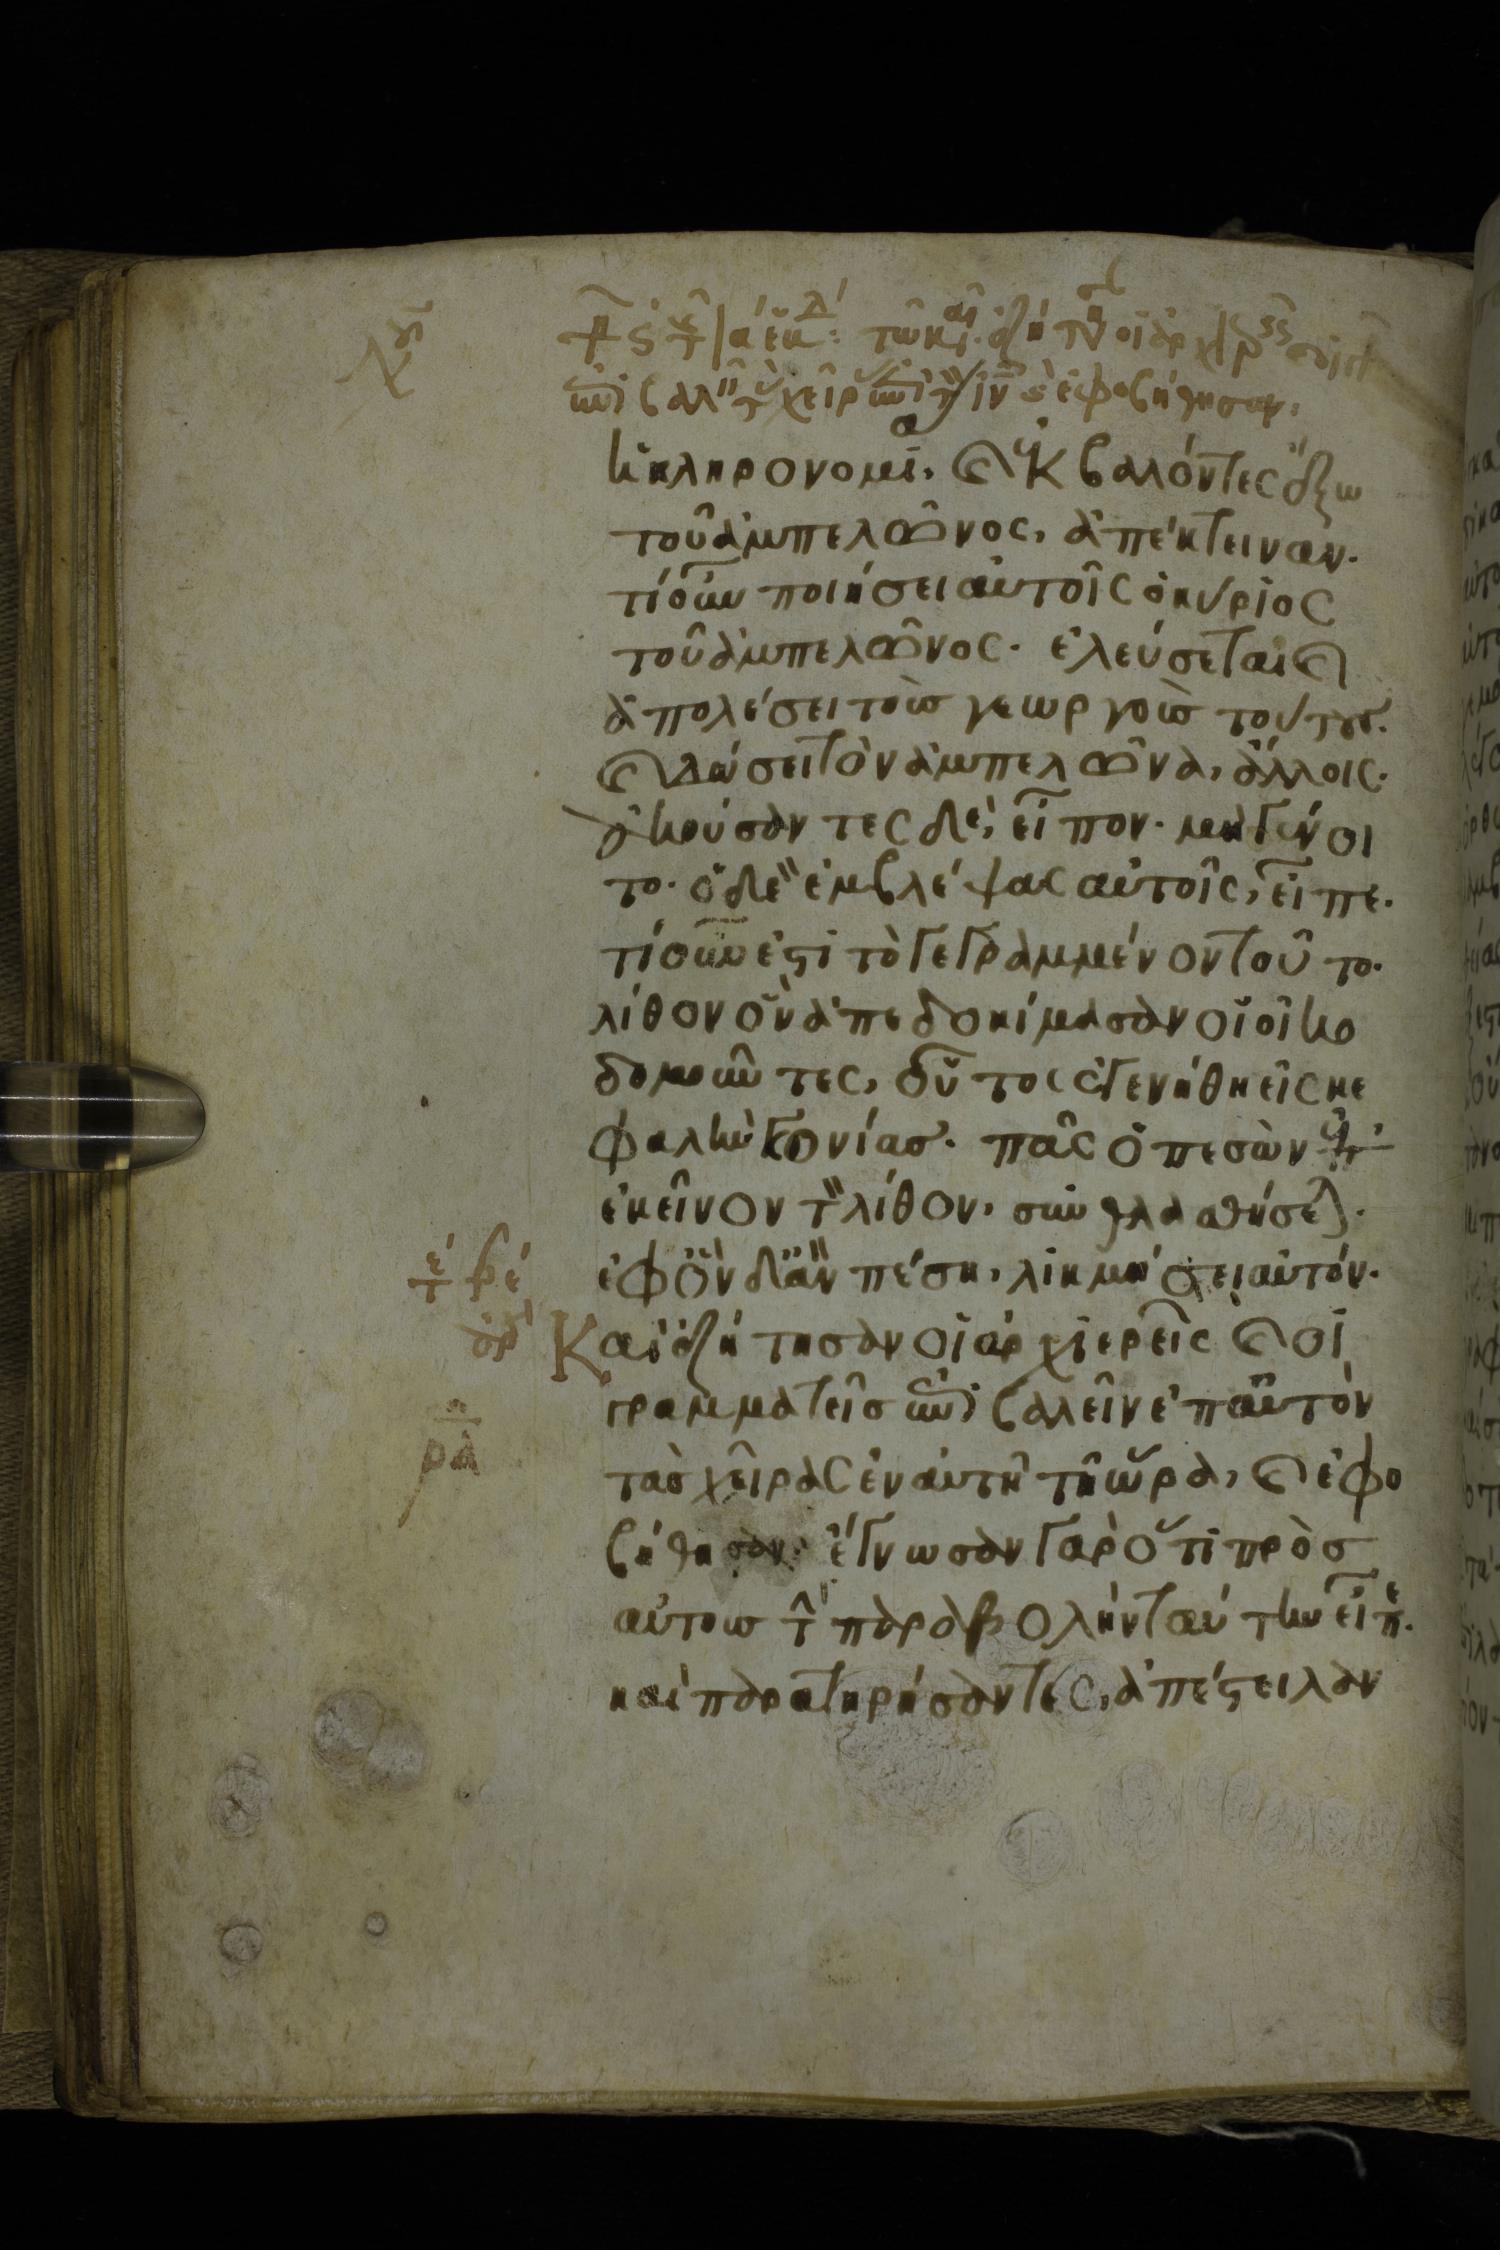 ἐπιβαλεῖν τὰς χεῖρας ἐπὶ τὸν ἰν καὶ ἐφοβήθησαν
κληρονομί, καὶ ἐκβαλόντες ἔξω
τοῦ ἀμπελῶνος, ἀπέκτειναν.
τί οὖν ποιήσει αὐτοῖς ὁ κύριος
τοῦ ἀμπελῶνος. ἐλεύσεται καὶ
ἀπολέσει τοὺς γεωργοὺς τούτους.
καὶ δώσει τὸν ἀμπελῶνα, ἄλλοις.
ἀκούσαντες δὲ, εἶπον. μὴ γένοι
το. ὁ δὲ ἐμβλέψας αὐτοῖς, εἶπε.
τί οὖν ἐστὶ τὸ γεγραμμένον τοῦτο.
λίθον ὃν ἀπεδοκίμασαν οἱ οἰκο
δομοῦντες, οὗτος ἐγενήθη εἰς κε
φαλὴν γωνίασ. πᾶς ὁ πεσὼν ἐπ'
ἐκεῖνον τὸν λίθον, συνθλασθήσεται.
ἐφ ὃν δ ἂν πέση, λικμήσει αὐτόν.
Καὶ ἐζήτησαν οἱ ἀρχιερεῖς καὶ οἱ
γραμματεῖσ ἐπιβαλεῖν ἐπ αὐτὸν
τὰσ χεῖρας ἐν αὐτῆ τῆ ὥρα, καὶ ἐφο
βήθησαν. ἔγνωσαν γὰρ ὅτι πρὸσ
αὐτοὺσ τὴν παραβολὴν ταύτην εἶπε.
καὶ παρατηρήσαντες, ἀπέστειλαν